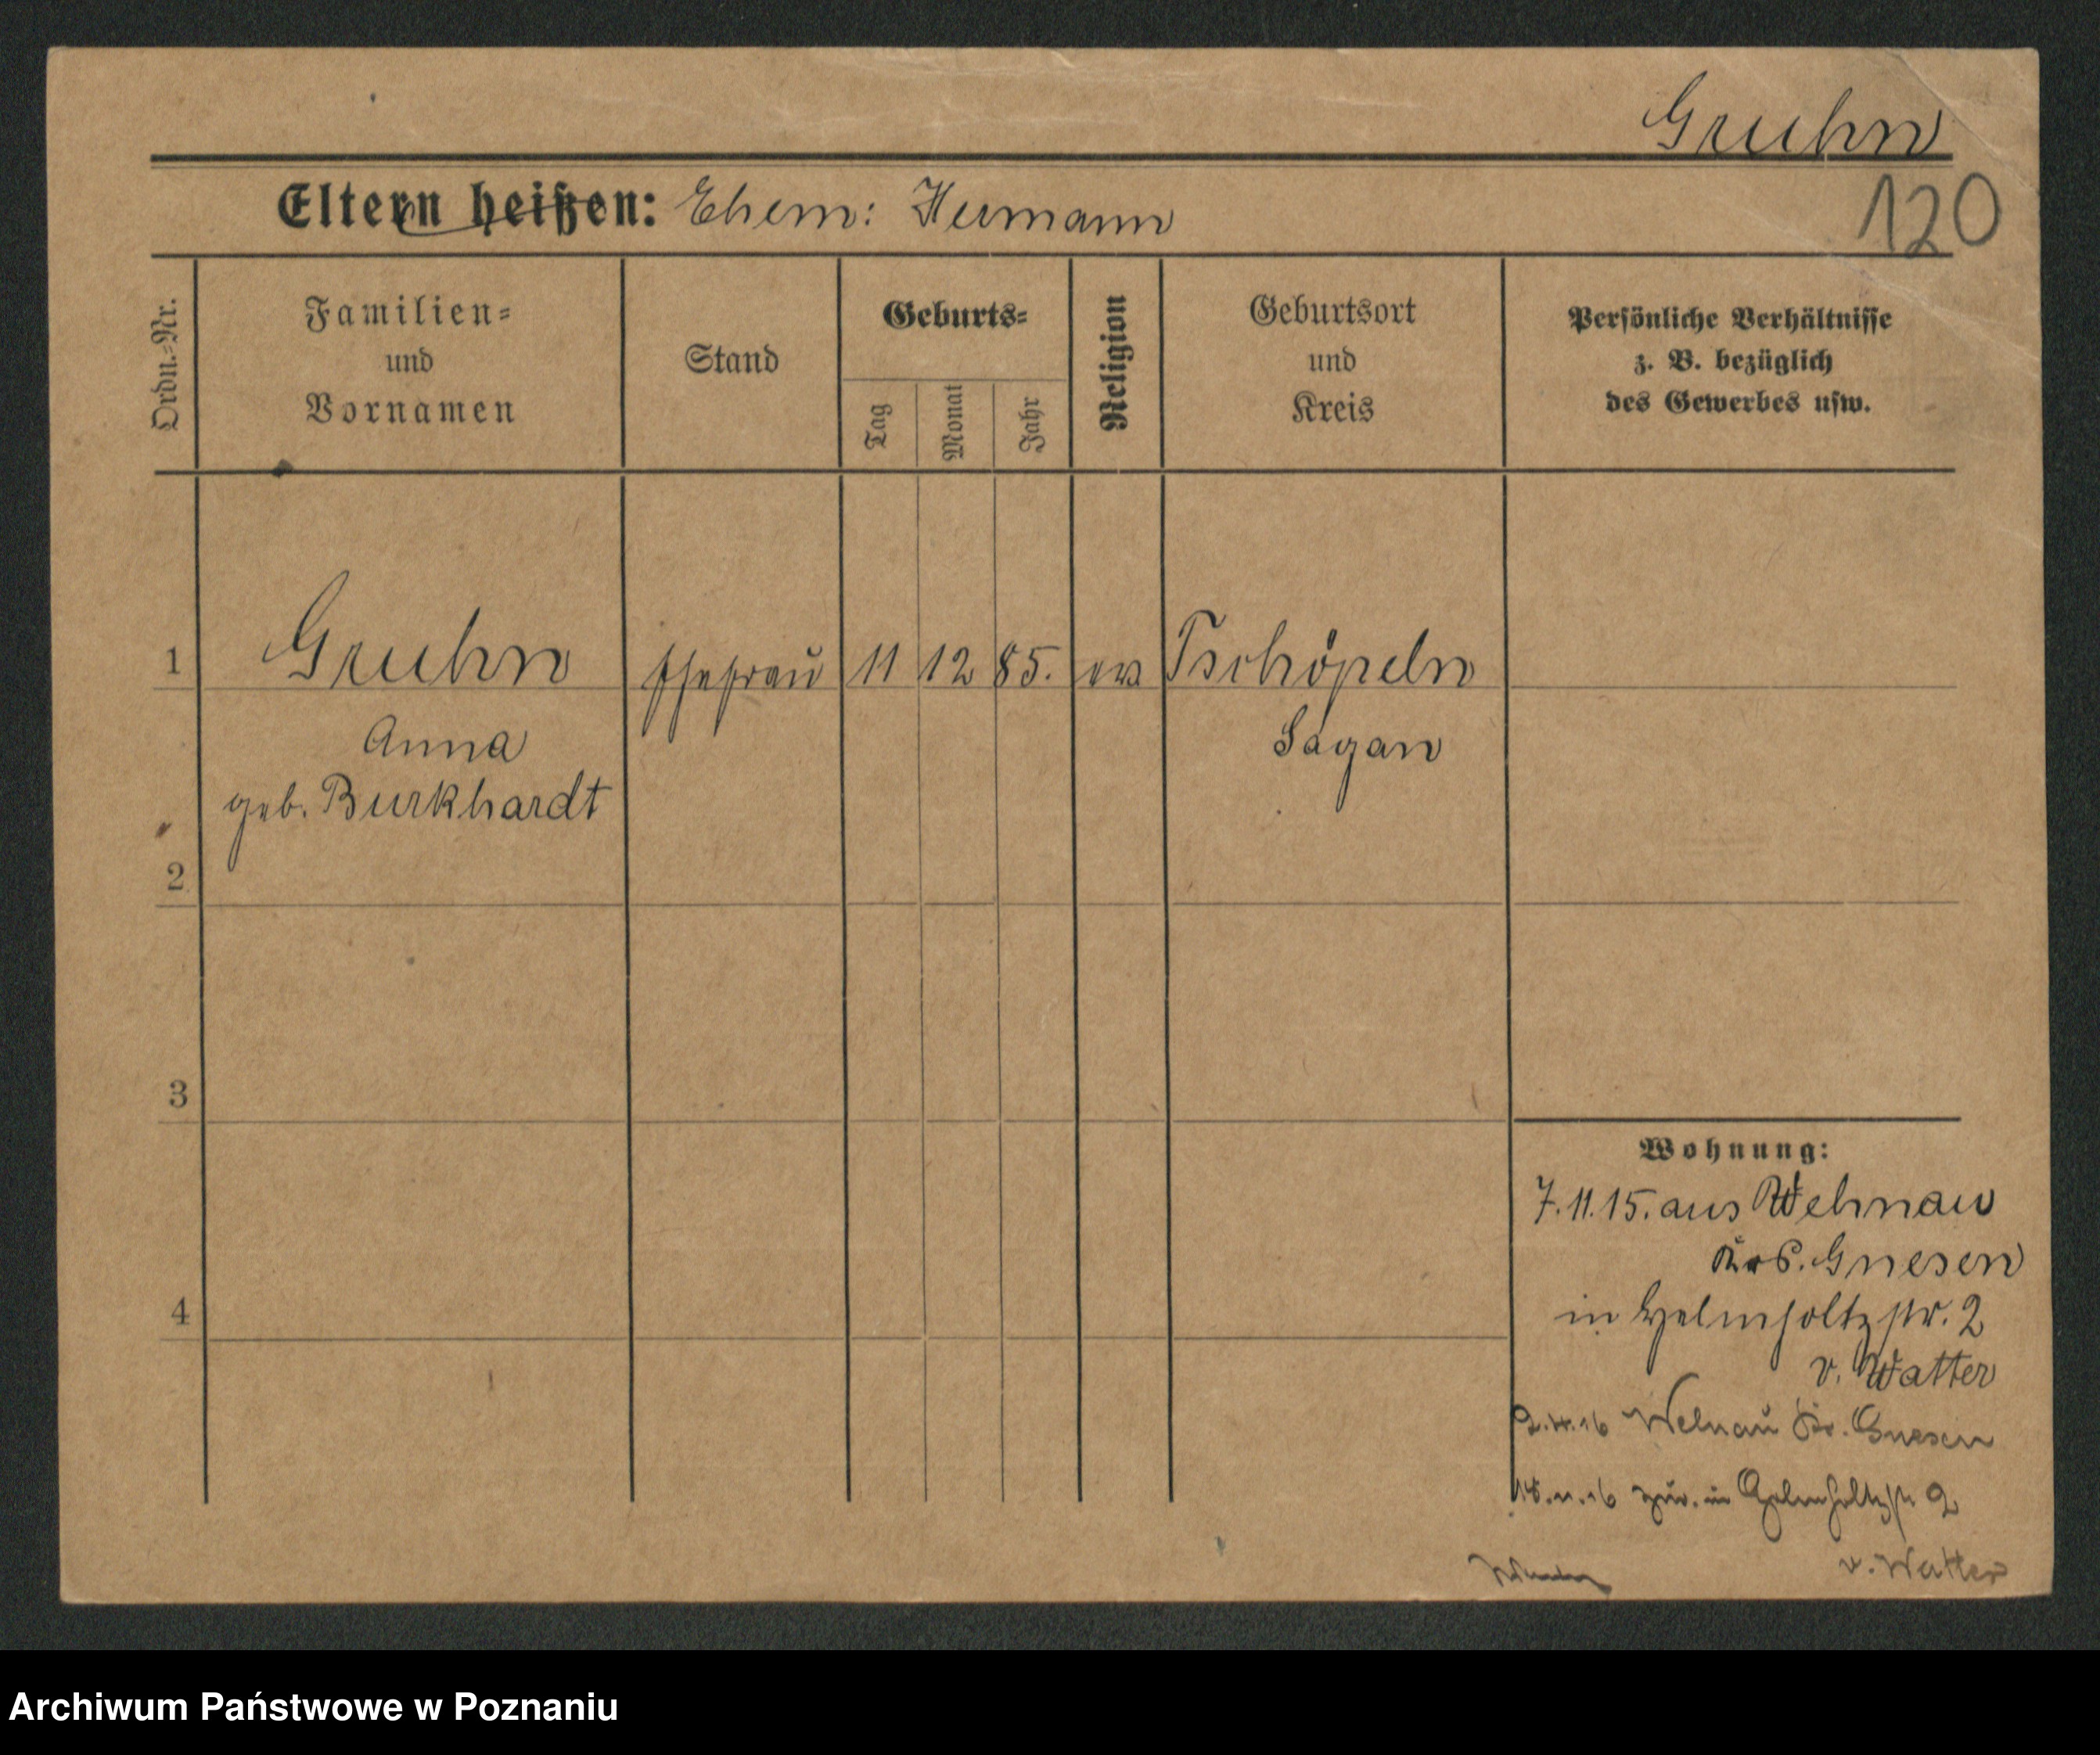 Gruhn
Eltern heißen: Ehem: Hermann
120
Ordn.-Nr.
Familien-
und
Vornamen
Stand
Geburts-
Tag
Monat
Jahr
Religion
Geburtsort
und
Kreis
Persönliche Verhältnisse
z. B. bezüglich
des Gewerbes usw.
1 Gruhn Ehefrau 11 12 85. ev Tschöpeln
Anna Sagan
geb. Burkhardt
2
3
4
Wohnung:
7.11.15. aus Welnau
Krs. Gnesen
in Helmholtzstr. 2
v. Watter
2.4.16 Welnau Kr. Gnesen
18.11.16 zur. in Helmholtzstr 2
v. Watter
Archiwum Państwowe w Poznaniu